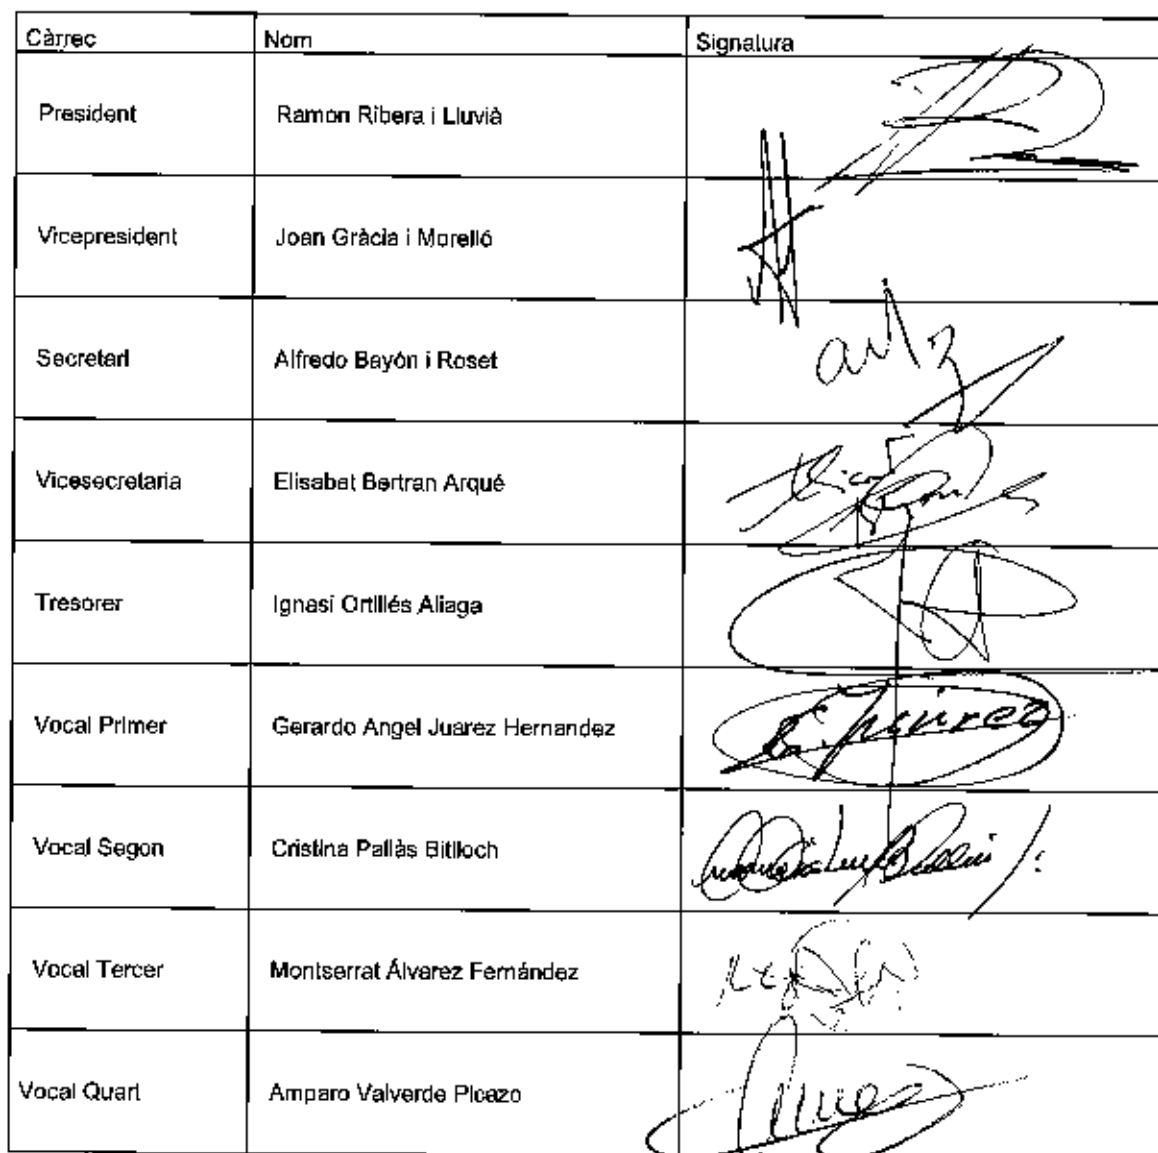 Càrrec Nom Signatura
President Ramon Ribera i Lluvià
Vicepresident Joan Gràcia i Morelló
Secretari Alfredo Bayón i Roset
Vicesecretaria Elisabet Bertran Arqué
Tresorer Ignasi Ortillés Aliaga
Vocal Primer Gerardo Angel Juarez Hernandez
Vocal Segon Cristina Pallàs Bitlloch
Vocal Tercer Montserrat Álvarez Fernández
Vocal Quart Amparo Valverde Picazo